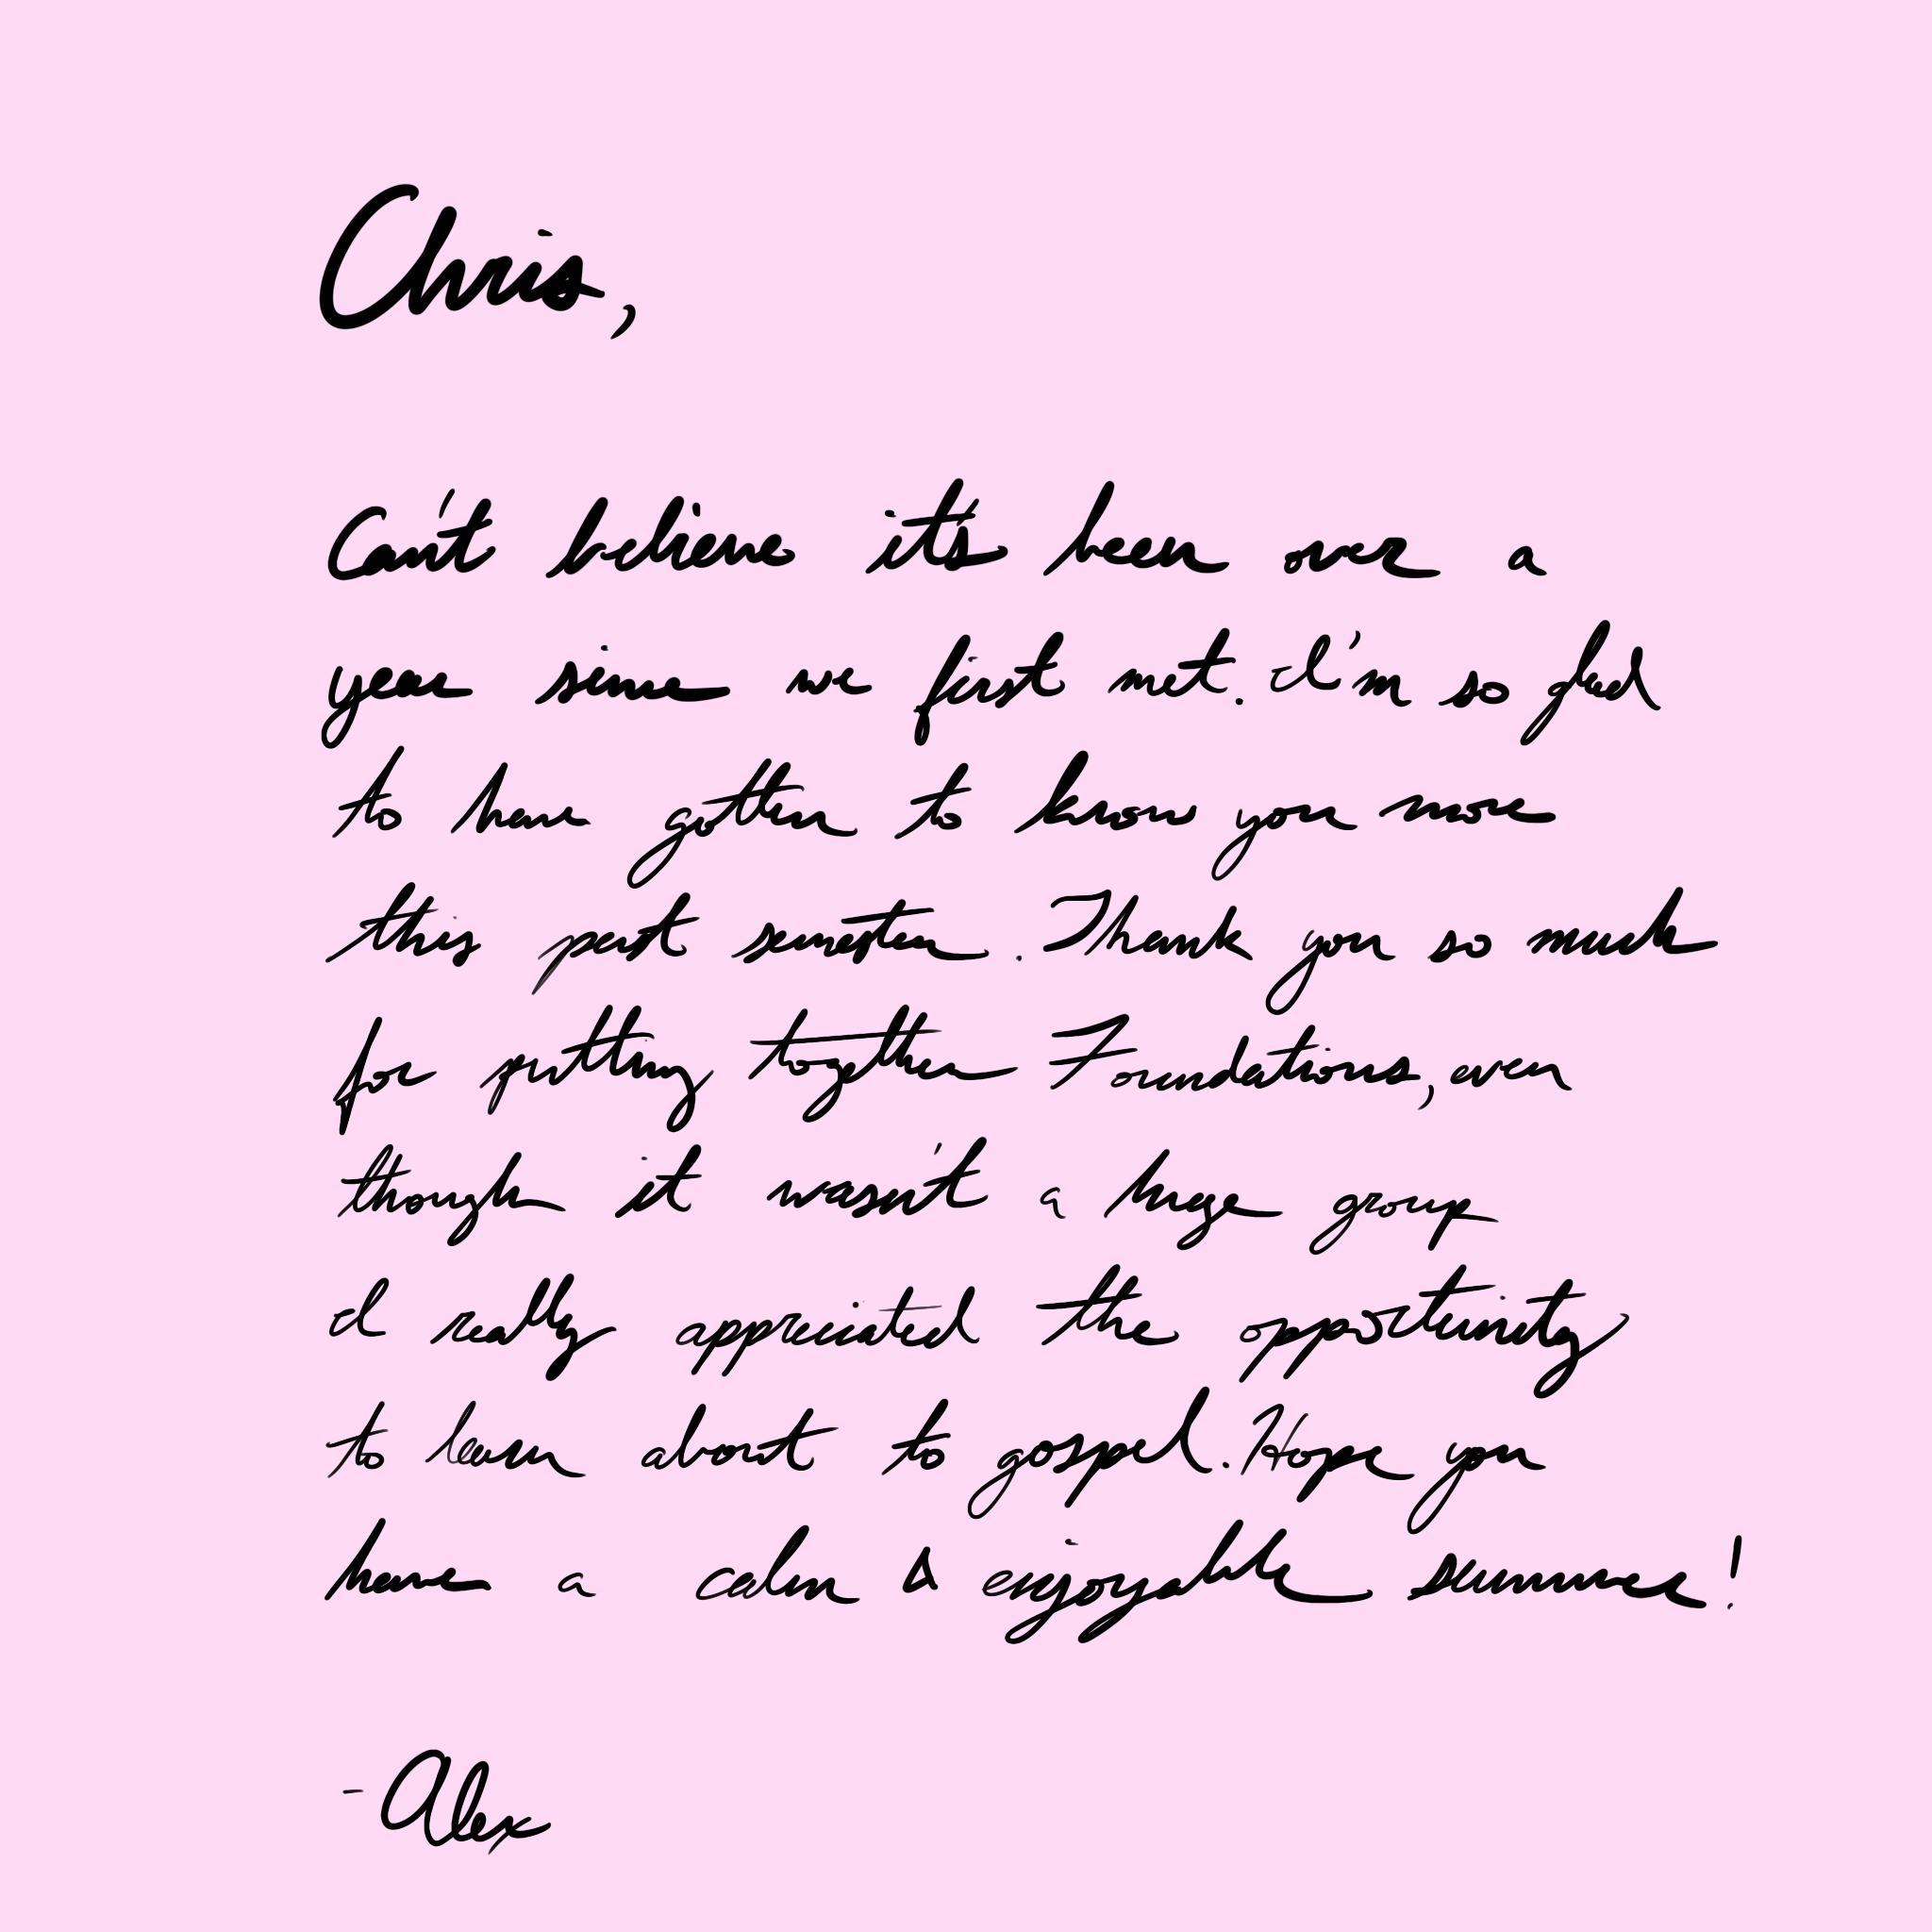 Chris,
Can't believe it's been over a
year since we first met. I'm so glad
to have gotten to know you more
this past semester. Thank you so much
for putting together Foundations, even
though it wasn't a huge group
I really appreciated the opportunity
to learn about to gospel. Hope you
have a calm & enjoyable summer!
- Alex